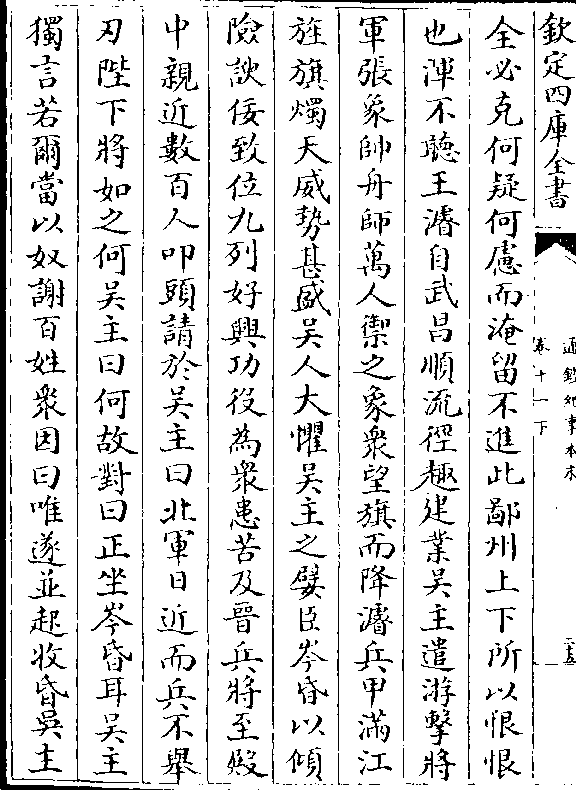 欽定四庫全書
通鑑紀事本末
卷十一下
二五
全必克何疑何慮而淹留不進此鄙州上下所以恨恨
也渾不聽王濬自武昌順流徑趣建業吳主遣游擊將
軍張象帥舟師萬人禦之象衆望旗而降濬兵甲滿江
旌旗燭天威勢甚盛吳人大懼吳主之嬖臣岑昏以傾
險諛佞致位九列好興功役為衆患苦及晉兵將至殿
中親近數百人叩頭請於吳主曰北軍日近而兵不舉
刃陛下將如之何吳主曰何故對曰正坐岑昏耳吳主
獨言若爾當以奴謝百姓衆因曰唯遂並起收昏吳主